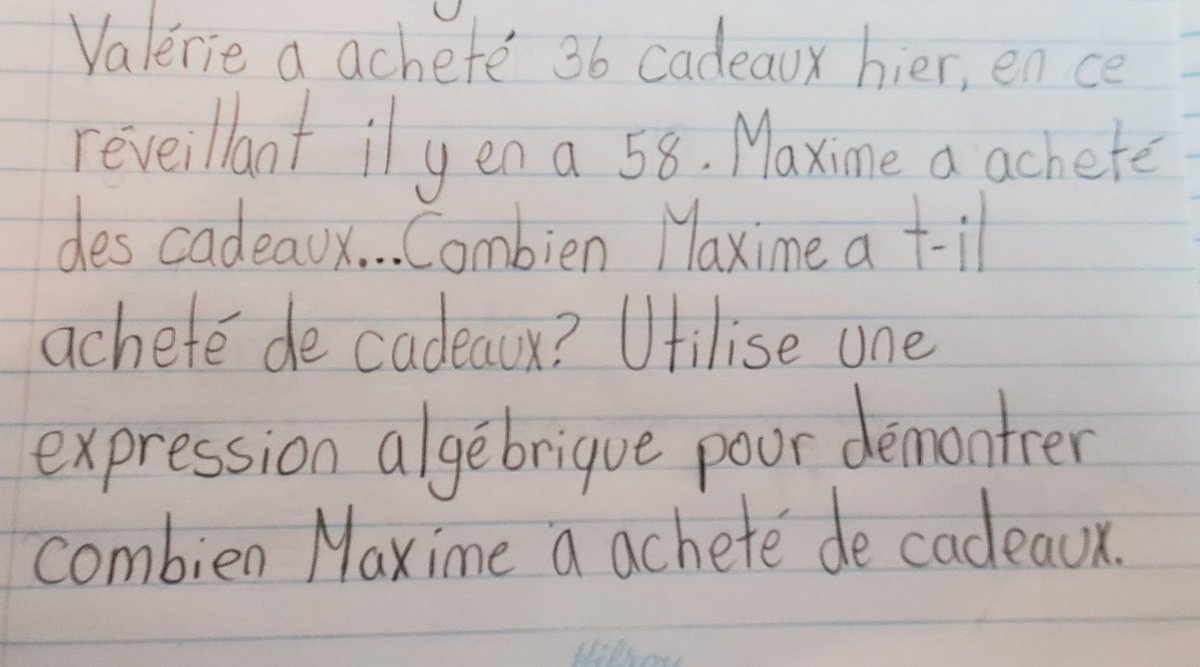 Valérie a acheté 36 cadeaux hier, en ce
réveillant il y en a 58. Maxime a acheté
des cadeaux...Combien Maxime a t-il
acheté de cadeaux? Utilise une
expression algébrique pour démontrer
combien Maxime a acheté de cadeaux.
Hilroy